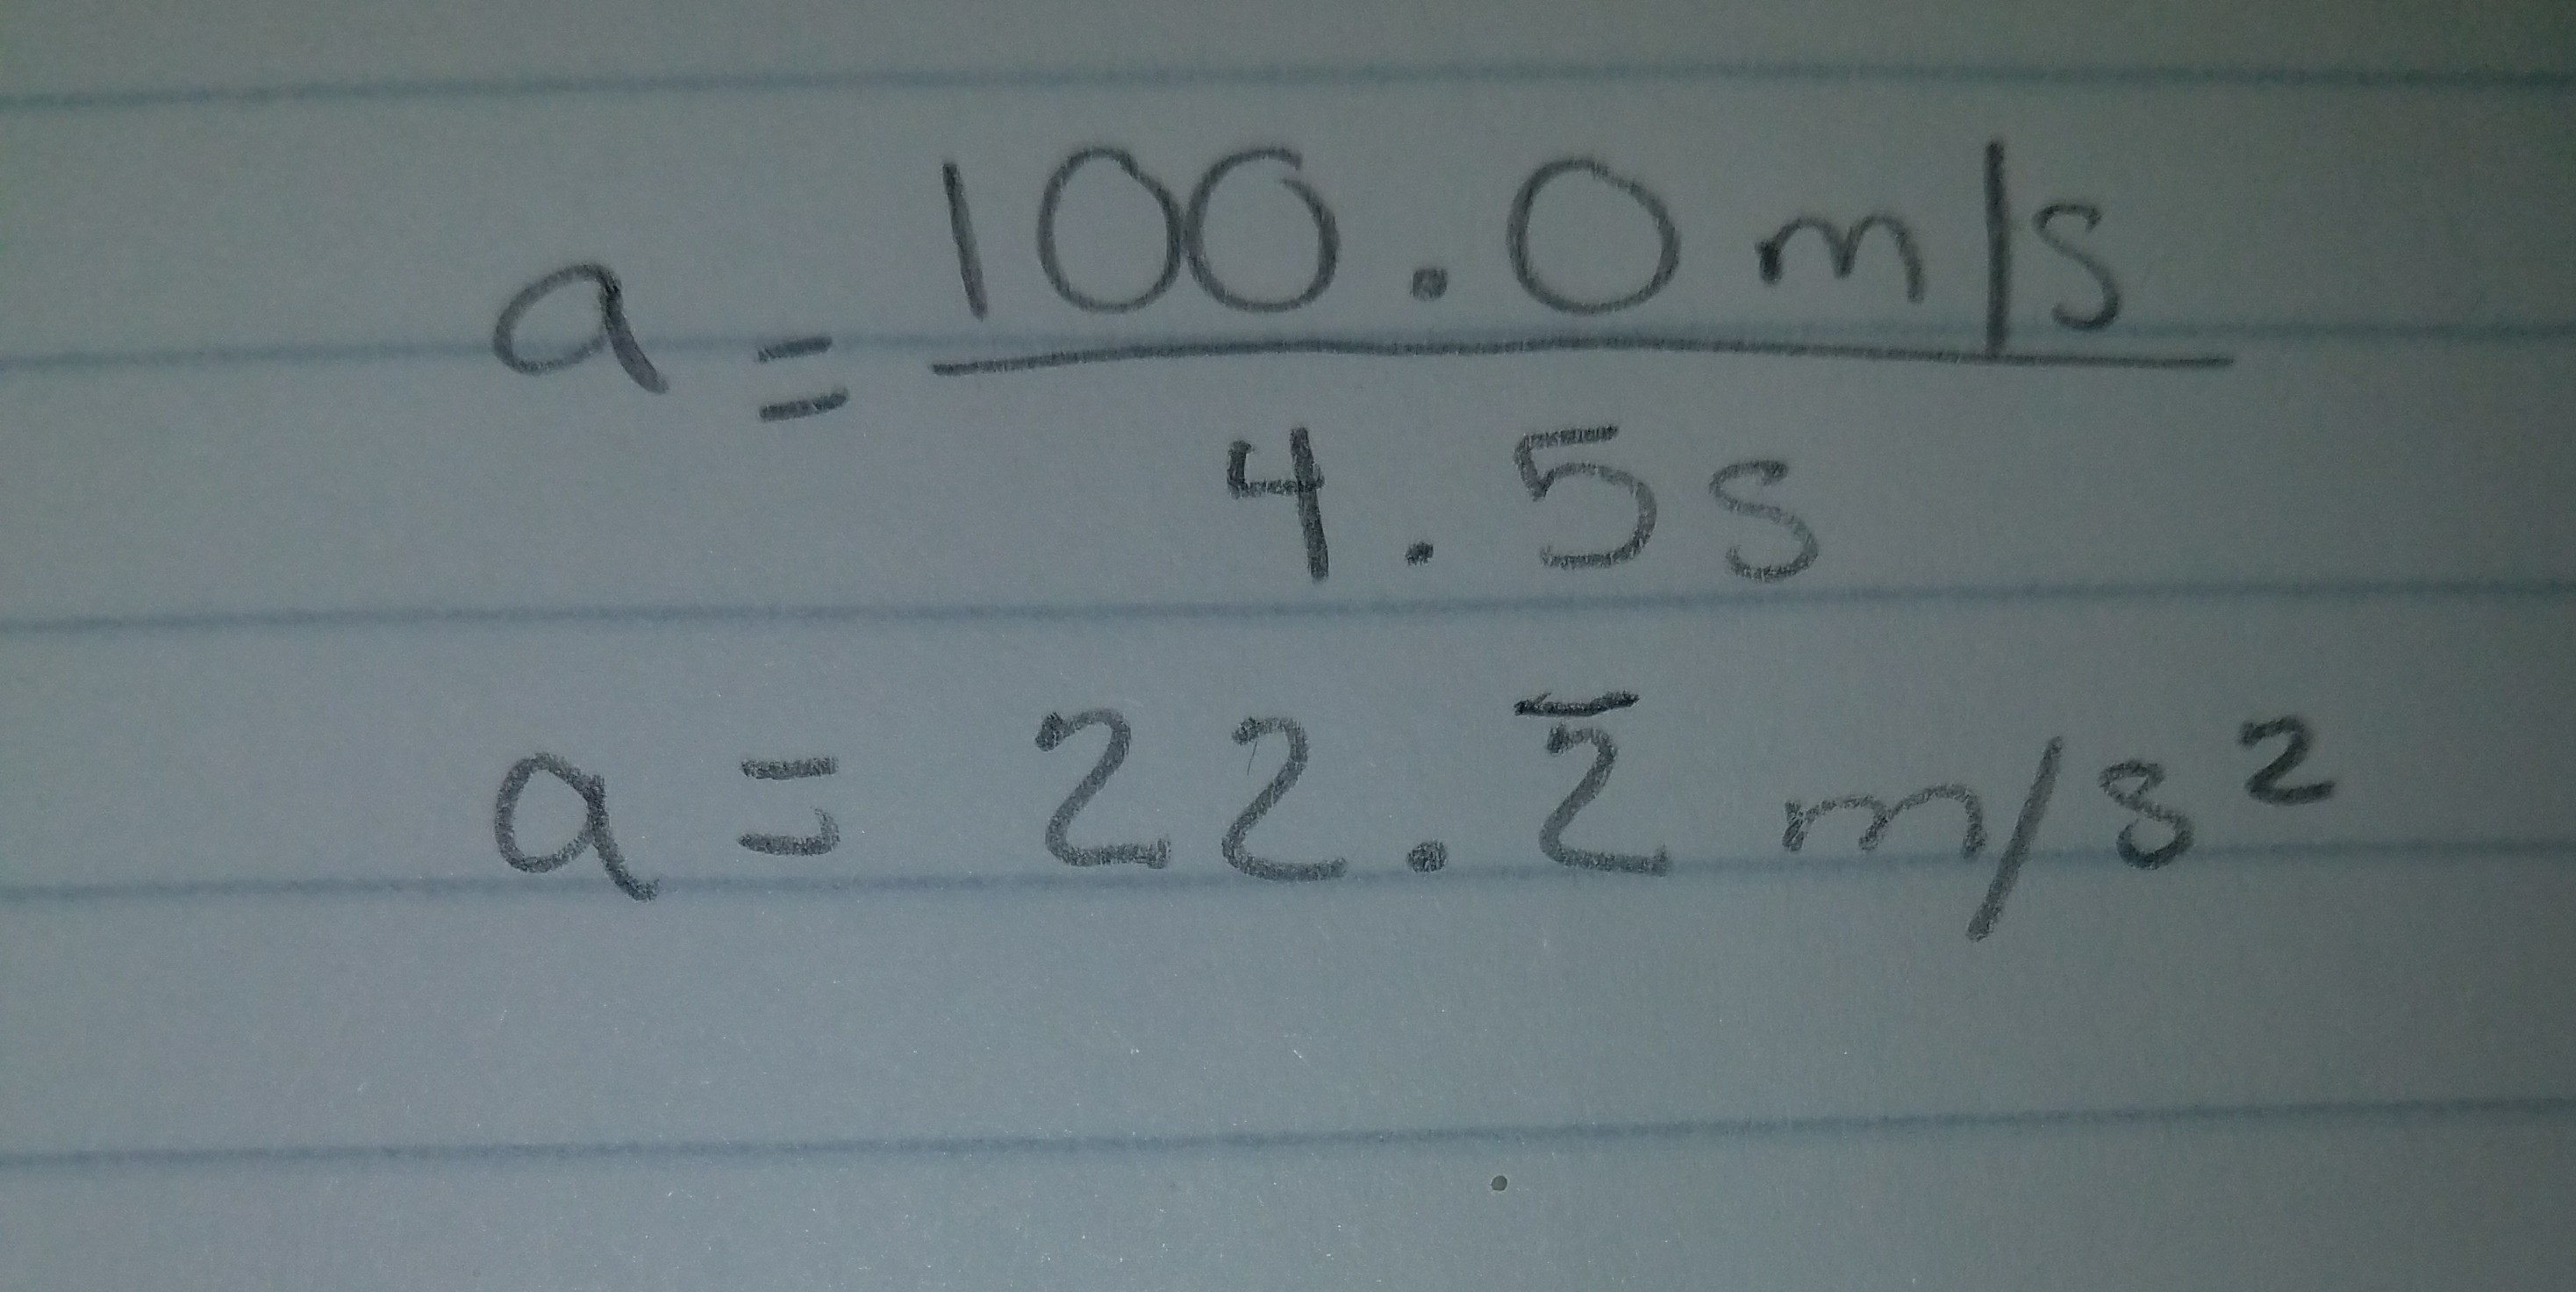 a = 100.0 m/s / 4.5 s
a = 22.2̅ m/s²